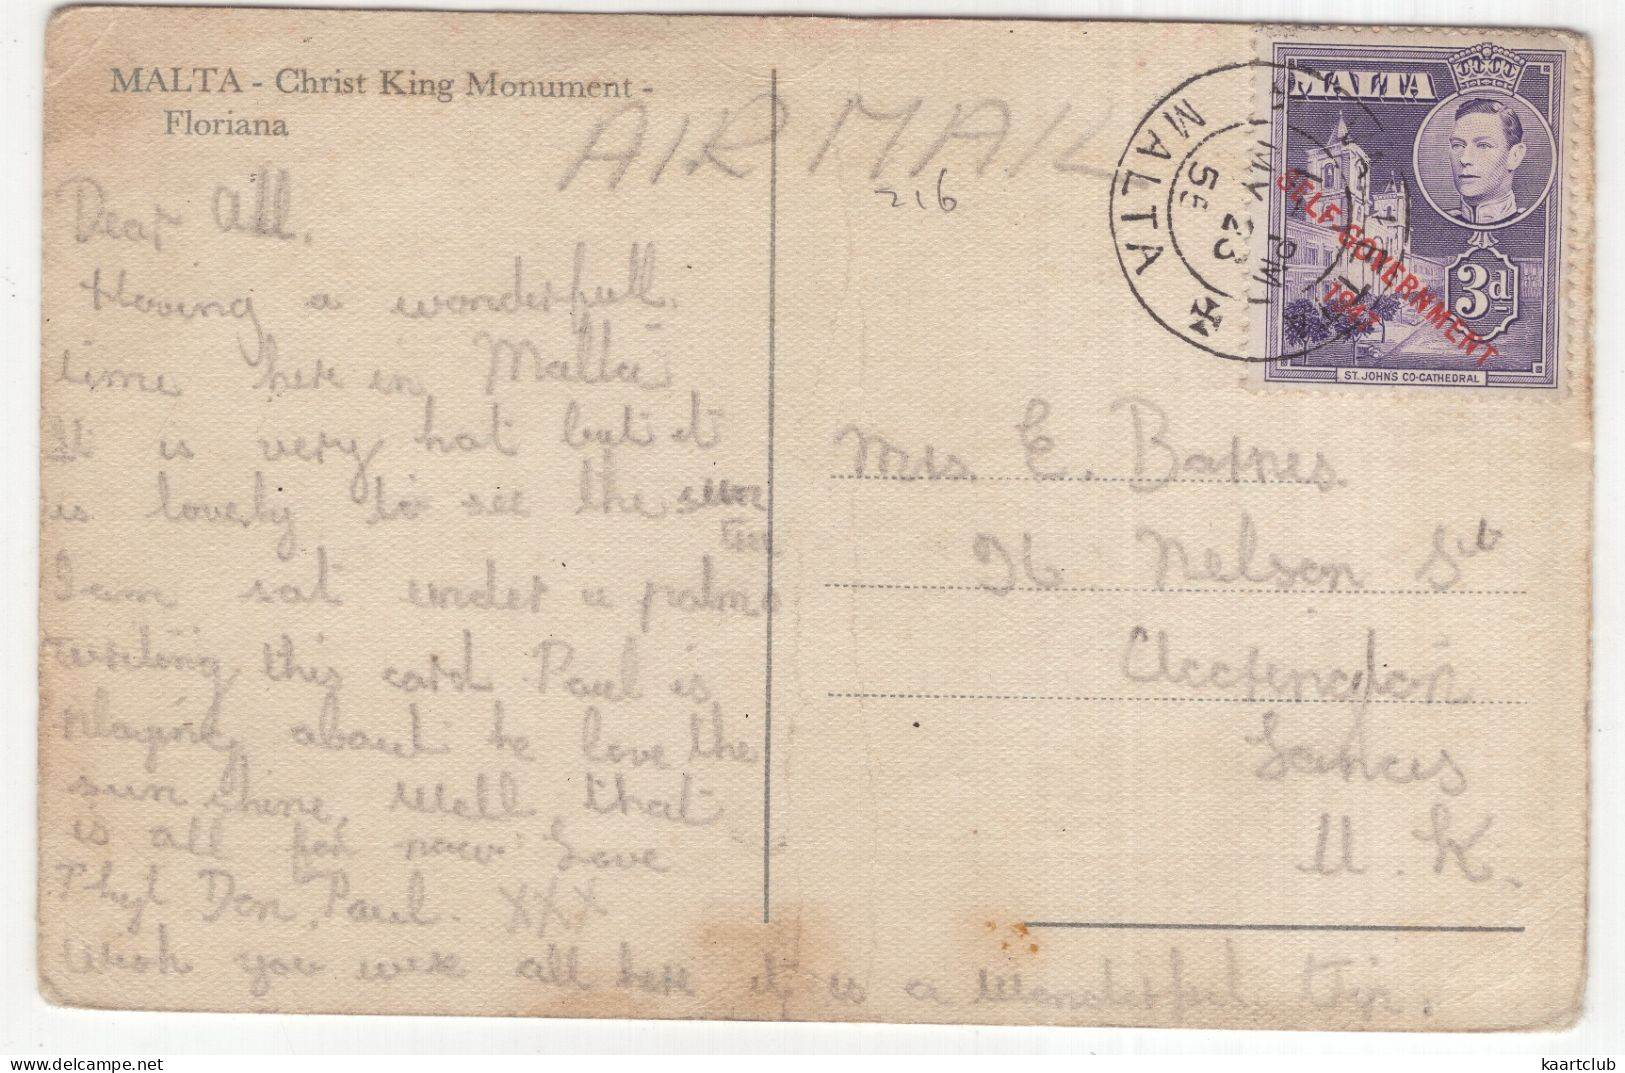 MALTA - Christ King Monument -
Floriana
AIR MAIL
216
Dear All.
Having a wonderfull
time here in Malta
It is very hot but it
is lovely to see the sun
I am sat under a palm
writing this card Paul is
playing about he love the
sun shine, Well that
is all for now Love
Phyl Don, Paul. XXX
Wish you were all here it is a Wonderful
Mrs. E. Barnes.
Nelson St
Accrington
Lancs
U. K.
MALTA
SELF-GOVERNMENT
1947
3d
ST. JOHN'S CO-CATHEDRAL
MALTA
PM
MY 23
55
kaartclub